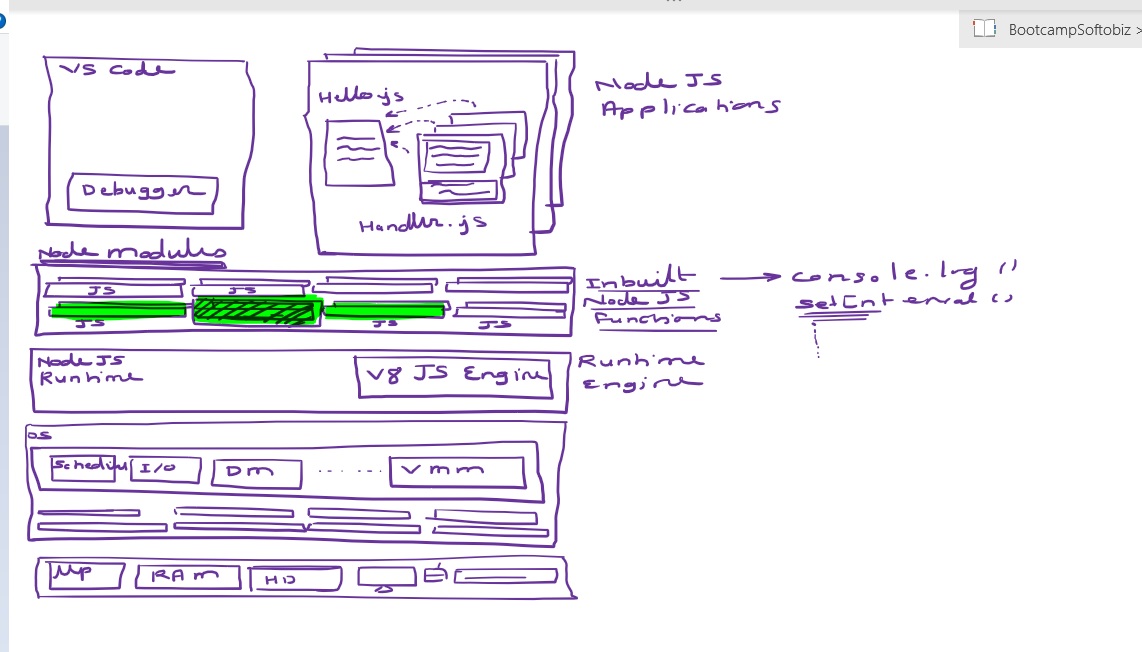 BootcampSoftobiz >
VS Code
Debugger
Hello.js
Handler.js
Node JS
Applications
Node modules
JS
JS
JS
JS
JS
Inbuilt
Node JS
Functions
console.log ()
setInterval ()
Node JS
Runtime
V8 JS Engine
Runtime
Engine
OS
I/O
DM
VMM
MP
RAM
HD